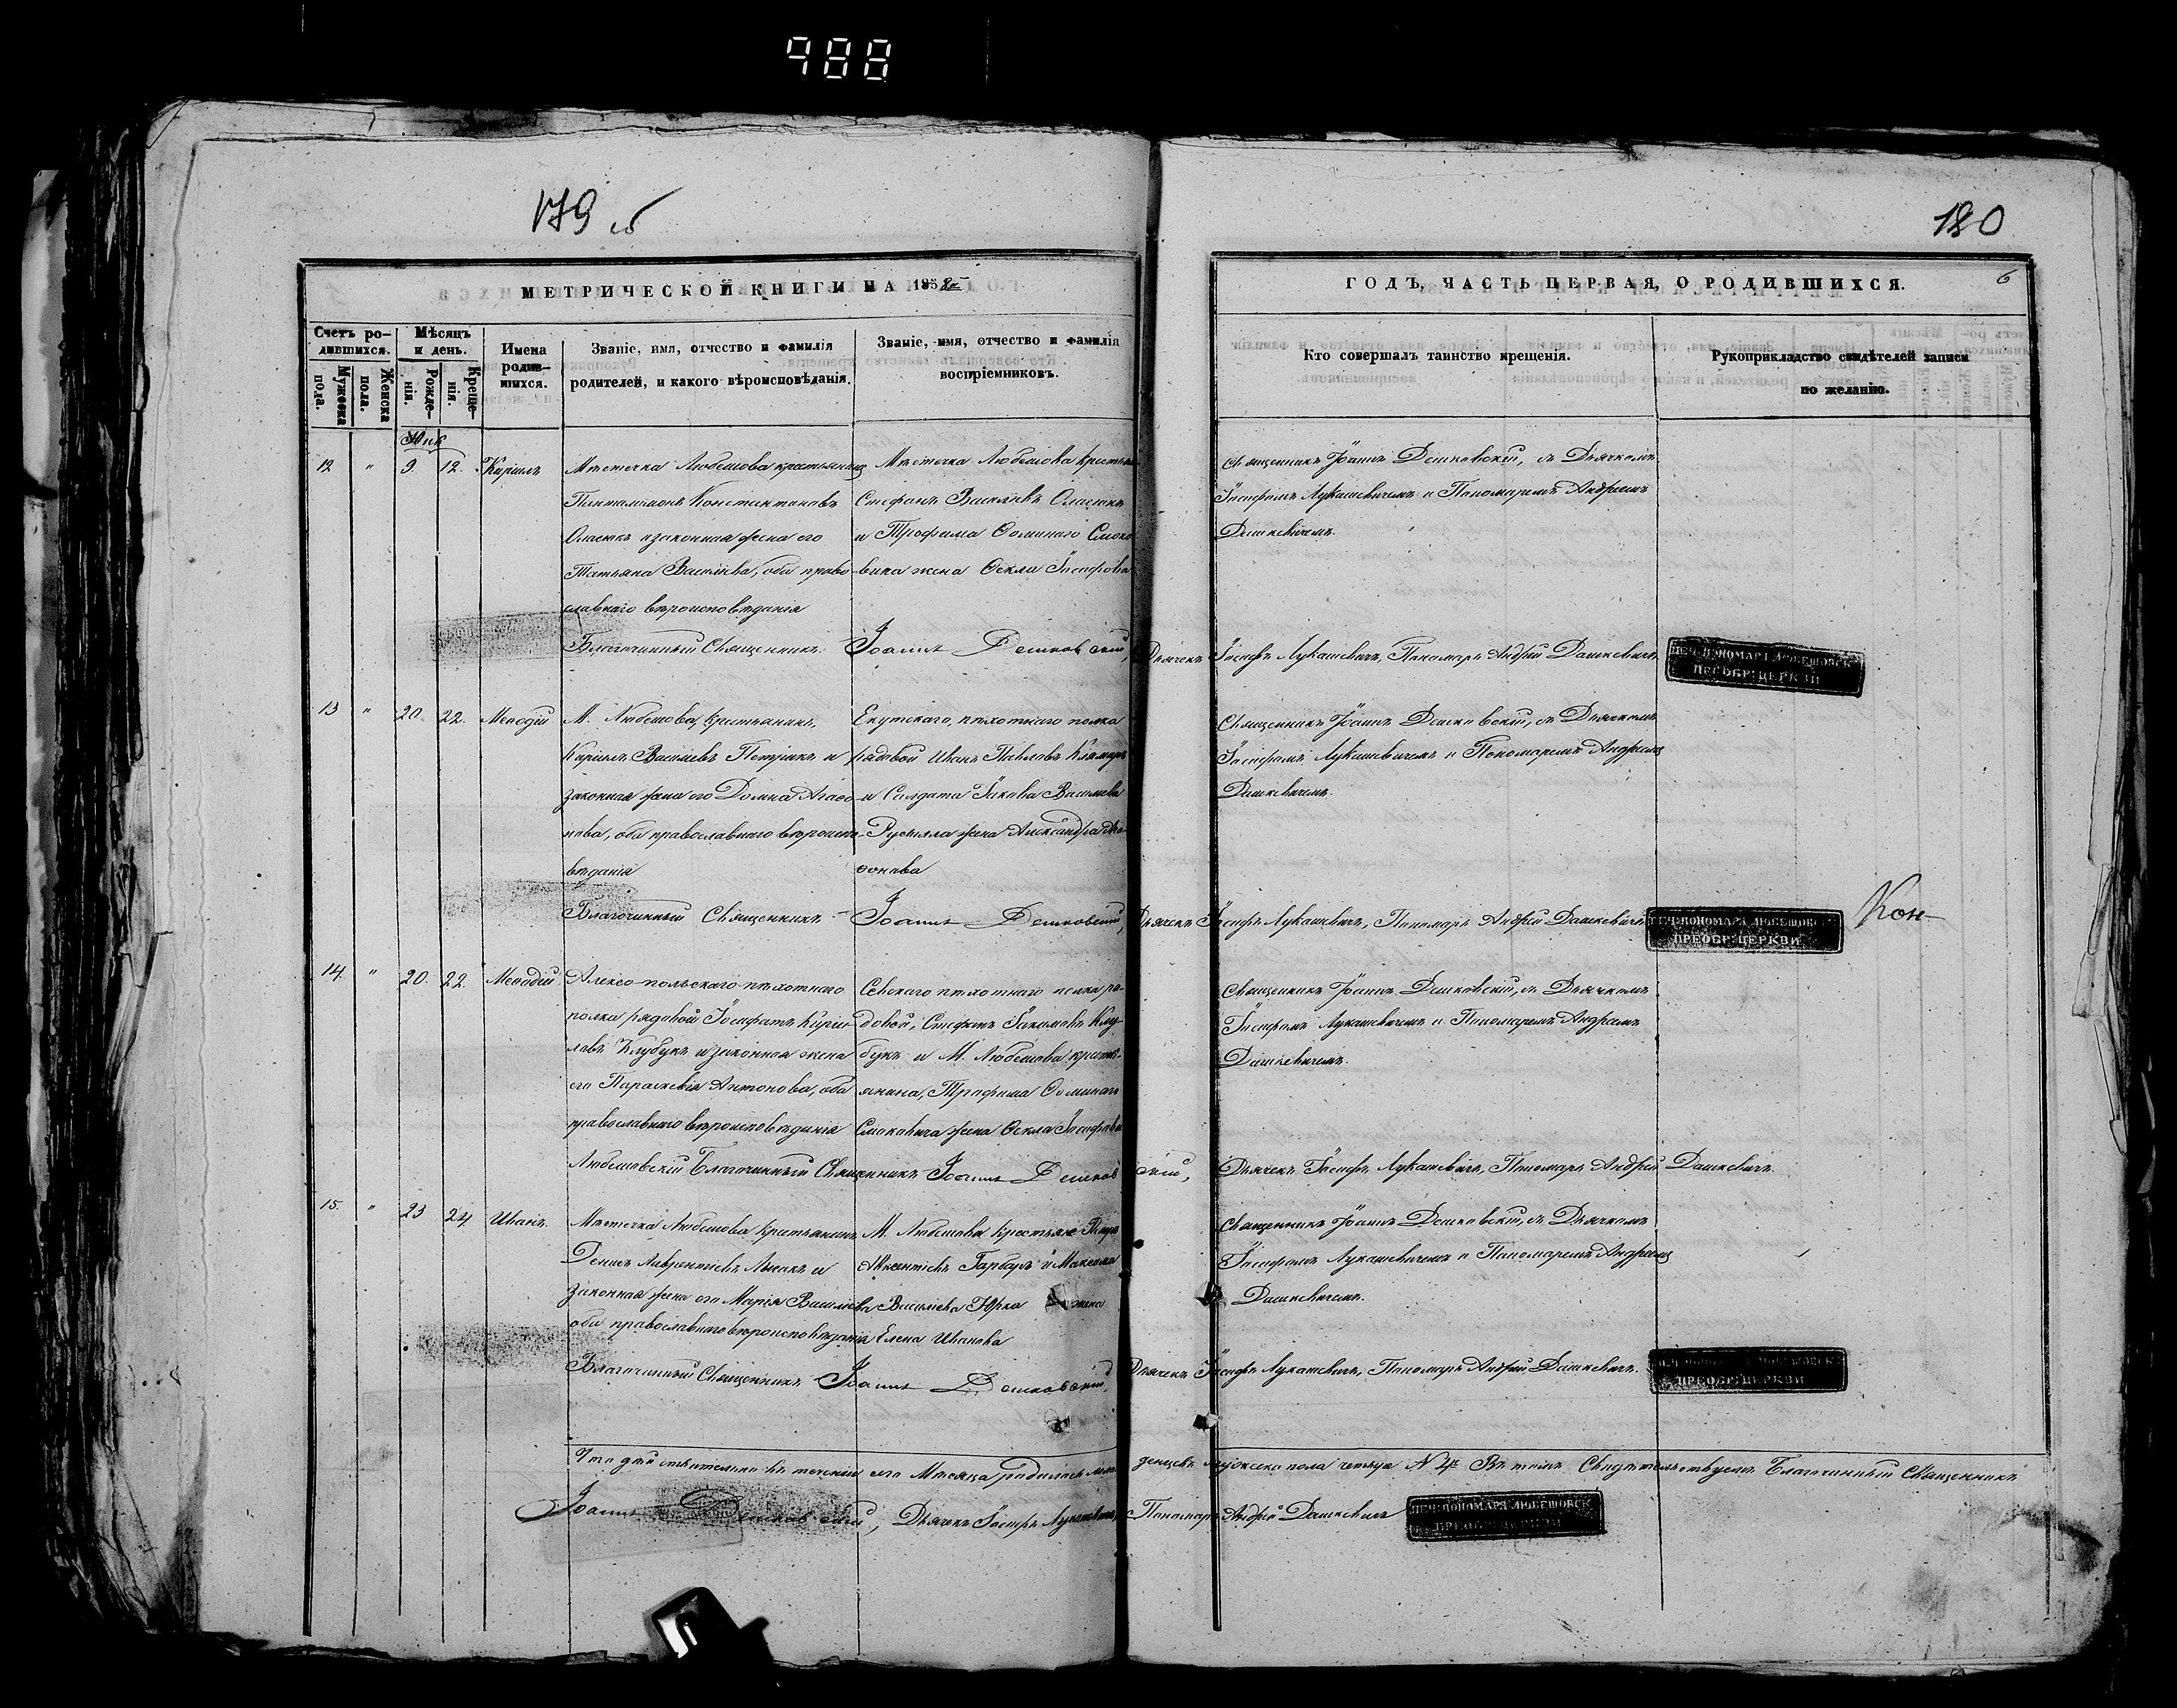 988
179 об
180
МЕТРИЧЕСКОЙ КНИГИ НА 1858
ГОДЪ, ЧАСТЬ ПЕРВАЯ, О РОДИВШИХСЯ.
6
Счетъ родившихся.
Мужеска пола.
Женска пола.
Мѣсяцъ и день.
Рожденія.
Крещенія.
Имена родившихся.
Званіе, имя, отчество и фамилія
родителей, и какого вѣроисповѣданія.
Званіе, имя, отчество и фамилія
воспріемниковъ.
Кто совершалъ таинство крещенія.
Рукоприкладство свидѣтелей записи
по желанію.
12 " 9. 12. Кирилъ
Мѣстечка Любешова крестьянинъ
Пантолимонъ Константиновъ
Оласюкъ и законная жена его
Татьяна Василіева, оба право-
славнаго вѣроисповѣданія
Мѣстечка Любешова
Стефанъ Василіевъ Оласюкъ
и Трофима Ѳоминаго
жена Ѳекла Іосифова
Священникъ Іоаннъ Дешковскій, съ Дьячкомъ
Іосифомъ Лукашевичемъ и Пономаремъ Андреемъ
Дашкевичемъ.
Благочинный Священникъ Іоаннъ Дешковскій, Дьячекъ Іосифъ Лукашевичъ, Пономаръ Андрей Дашкевичъ
ПЕЧ: ПОНОМАРЯ ЛЮБЕШОВСК
ПРЕОБР: ЦЕРКВИ
13 " 20. 22. Меѳодій
М. Любешова, крестьянинъ,
Кирилъ Василіевъ Петрикъ и
законная жена его Домна Агаѳо-
нова, оба православнаго вѣроиспо-
вѣданія
Екутскаго пѣхотнаго полка
рядовой Иванъ Павловъ
и Солдата Іакова Василіева
жена Александра
Священникъ Іоаннъ Дешковскій, съ Дьячкомъ
Іосифомъ Лукашевичемъ и Пономаремъ Андреемъ
Дашкевичемъ.
Благочинный Священникъ Іоаннъ Дешковскій, Дьячекъ Іосифъ Лукашевичъ, Пономаръ Андрей Дашкевичъ
ПЕЧ: ПОНОМАРЯ ЛЮБЕШОВСК
ПРЕОБР: ЦЕРКВИ
Кон-
14. " 20. 22. Меѳодій
Алексо-польскаго пѣхотнаго
полка рядовой Іосафатъ Кирил-
ловъ Клубукъ и законная жена
его Параскевія Антонова, оба
православнаго вѣроисповѣданія
Севскаго пѣхотнаго полка ря-
довой, Стефанъ Клу-
букъ и М. Любешова кресть-
янина, Трофима Ѳоминаго
жена Ѳекла Іосифова
Священникъ Іоаннъ Дешковскій, съ Дьячкомъ
Іосифомъ Лукашевичемъ и Пономаремъ Андреемъ
Дашкевичемъ.
Любешовскій Благочинный Священникъ Іоаннъ Дешковскій, Дьячекъ Іосифъ Лукашевичъ, Пономаръ Андрей Дашкевичъ.
15. " 23 24 Иванъ.
Мѣстечка Любешова крестьянинъ
Денисъ Лаврентіевъ Лысакъ и
законная жена его Марія Василіева
оба православнаго вѣроисповѣданія
М. Любешова крестьяне
Авксентіевъ Гарбаръ и Максима
Василіева Юрка жена
Елена Иванова
Священникъ Іоаннъ Дешковскій, съ Дьячкомъ
Іосифомъ Лукашевичемъ и Пономаремъ Андреемъ
Дашкевичемъ.
Благочинный Священникъ Іоаннъ Дешковскій, Дьячекъ Іосифъ Лукашевичъ, Пономаръ Андрей Дашкевичъ.
ПРЕОБР: ЦЕРКВИ
Что дѣйствительно въ теченіи сего Мѣсяца родилось младенцевъ мужеска пола четыре N 4. Въ томъ Свидѣтельствуемъ Благочинный Священникъ
Іоаннъ Дешковскій, Дьячекъ Іосифъ Лукашевичъ, Пономаръ Андрей Дашкевичъ
ПЕЧ: ПОНОМАРЯ ЛЮБЕШОВСК
ПРЕОБР: ЦЕРКВИ